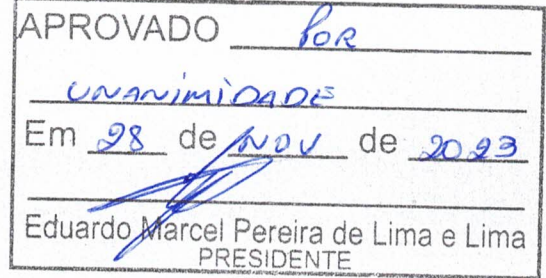 APROVADO POR
UNANIMIDADE
Em 28 de NOV de 2023
Eduardo Marcel Pereira de Lima e Lima
PRESIDENTE